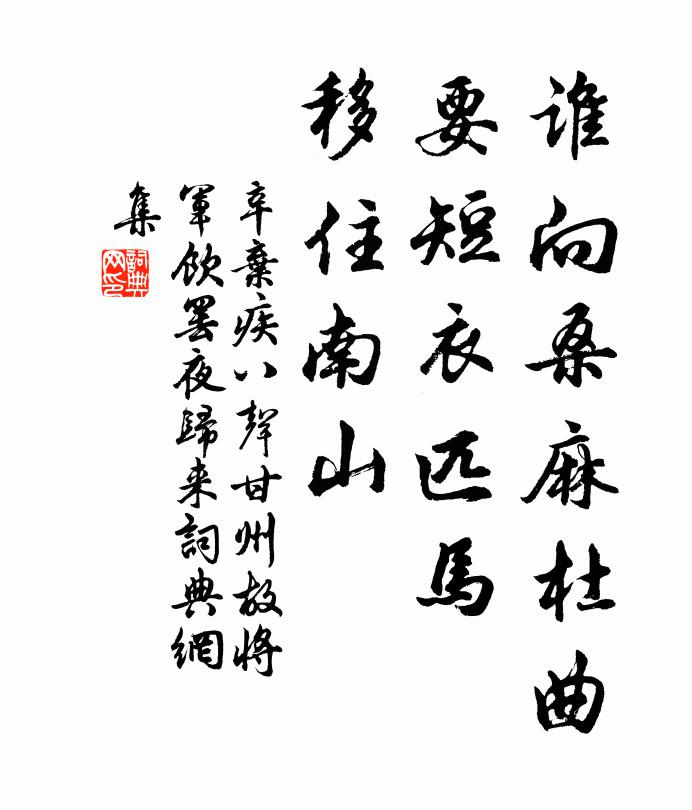 谁向桑麻杜曲
要短衣匹馬
移住南山
辛棄疾八聲甘州故將
軍飲罷夜歸来詞典網
集
詞典網印